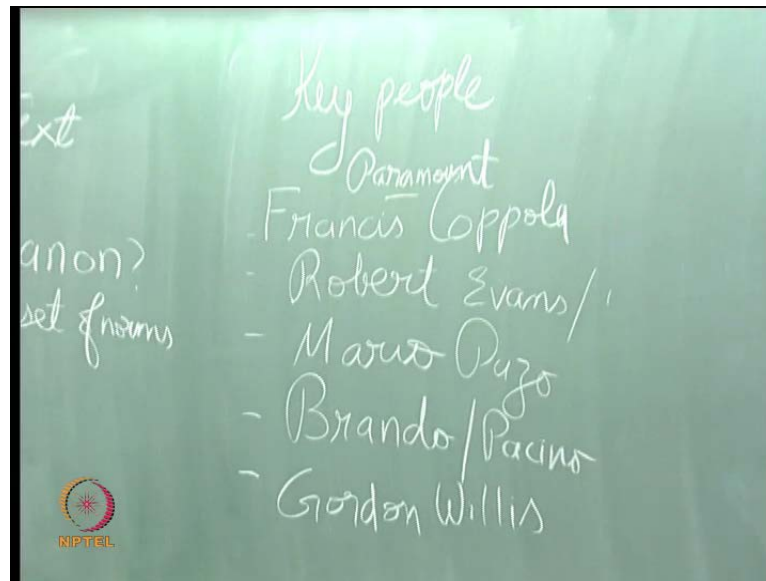 ext
anon?
set of norms
Key people
Paramount
- Francis Coppola
- Robert Evans/
- Mario Puzo
- Brando/Pacino
- Gordon Willis
NPTEL